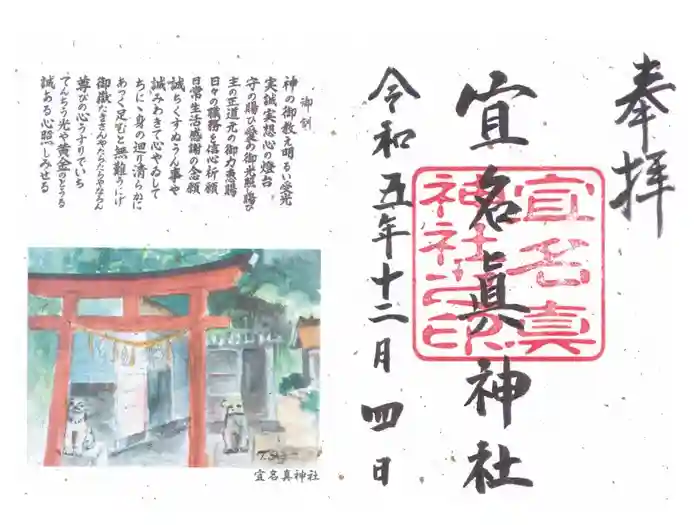 奉拝
宜名真神社
宜名真
神社之印
令和五年十二月四日
御剣
神の御教え明るい愛光
実誠実想心の燈台
守の賜ひ愛の御光照し賜ひ
主の正道元の御力恵賜
日々の職務を信心祈願
日常生活感謝の念願
誠ちくすぬうん事や
誠みわきて心やゐして
ちにゝ身の廻り清らかに
あつく足むと無難うにげ
尊びの心うすりでいち
てんちう光や黄金のとうる
誠ある心照しみせる
宜名真神社